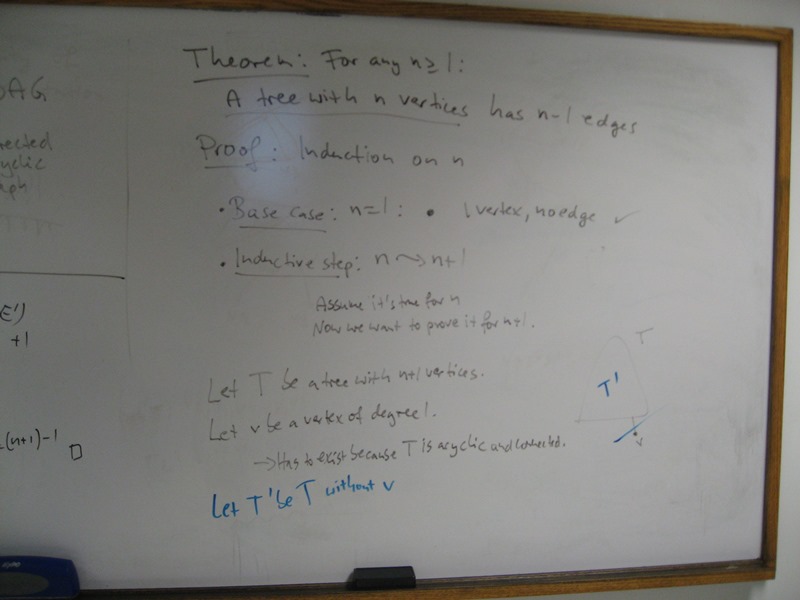 DAG
Theorem: For any n ≥ 1:
A tree with n vertices has n-1 edges
Proof: Induction on n
• Base case: n=1: • 1 vertex, no edge ✓
• Inductive step: n ⤳ n+1
Assume it's true for n
Now we want to prove it for n+1.
E')
+1
Let T be a tree with n+1 vertices.
Let v be a vertex of degree 1.
→ Has to exist because T is acyclic and connected.
Let T' be T without v
(n+1)-1
□
T
T'
v